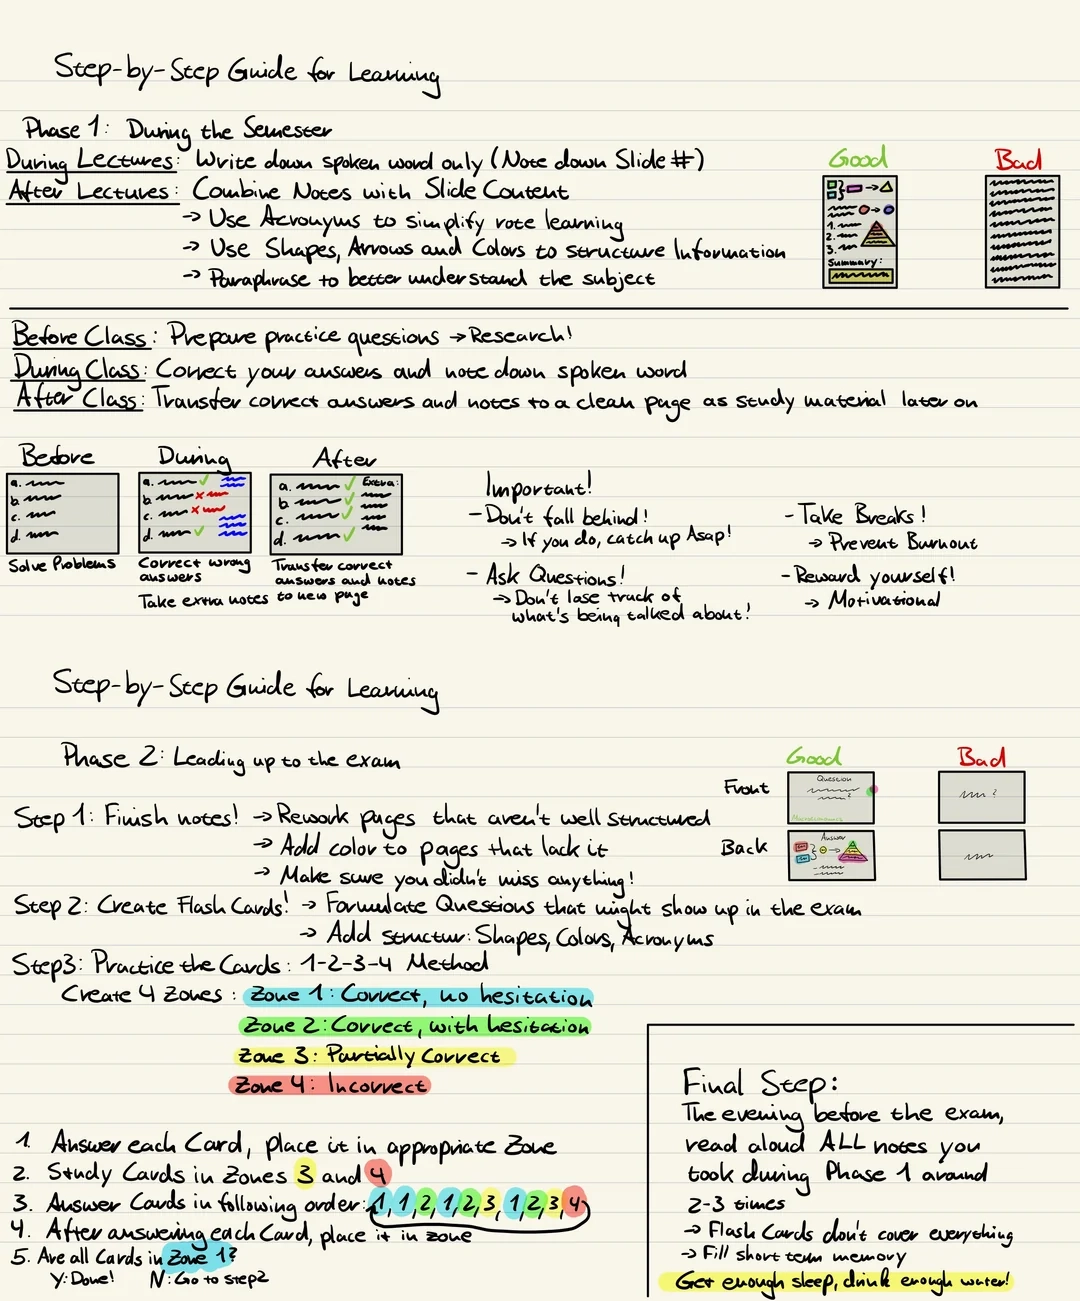 Step-by-Step Guide for Learning
Phase 1: During the Semester
During Lectures: Write down spoken word only (Note down Slide #)
After Lectures: Combine Notes with Slide Content
→ Use Acronyms to simplify rote learning
→ Use Shapes, Arrows and Colors to structure Information
→ Paraphrase to better understand the subject
Good
Bad
1.
2.
3.
Summary:
Before Class: Prepare practice questions → Research!
During Class: Correct your answers and note down spoken word
After Class: Transfer correct answers and notes to a clean page as study material later on
Before
During
After
a.
b.
c.
d.
a.
b.
c.
d.
a.
b.
c.
d.
Extra:
Solve Problems
Correct wrong
answers
Take extra notes
Transfer correct
answers and notes
to new page
Important!
- Don't fall behind!
→ If you do, catch up Asap!
- Ask Questions!
→ Don't lose track of
what's being talked about!
- Take Breaks!
→ Prevent Burnout
- Reward yourself!
→ Motivational
Step-by-Step Guide for Learning
Phase 2: Leading up to the exam
Good
Bad
Front
Question
?
?
Back
Answer
Step 1: Finish notes! → Rework pages that aren't well structured
→ Add color to pages that lack it
→ Make sure you didn't miss anything!
Step 2: Create Flash Cards! → Formulate Questions that might show up in the exam
→ Add structur: Shapes, Colors, Acronyms
Step3: Practice the Cards: 1-2-3-4 Method
Create 4 Zones: Zone 1: Correct, no hesitation
Zone 2: Correct, with hesitation
Zone 3: Partially Correct
Zone 4: Incorrect
1. Answer each Card, place it in appropriate Zone
2. Study Cards in Zones 3 and 4
3. Answer Cards in following order: 1, 1 2, 1, 2, 3, 1, 2, 3, 4
4. After answering each Card, place it in zone
5. Are all Cards in Zone 1?
Y: Done! N: Go to step2
Final Step:
The evening before the exam,
read aloud ALL notes you
took during Phase 1 around
2-3 times
→ Flash Cards don't cover everything
→ Fill short term memory
Get enough sleep, drink enough water!